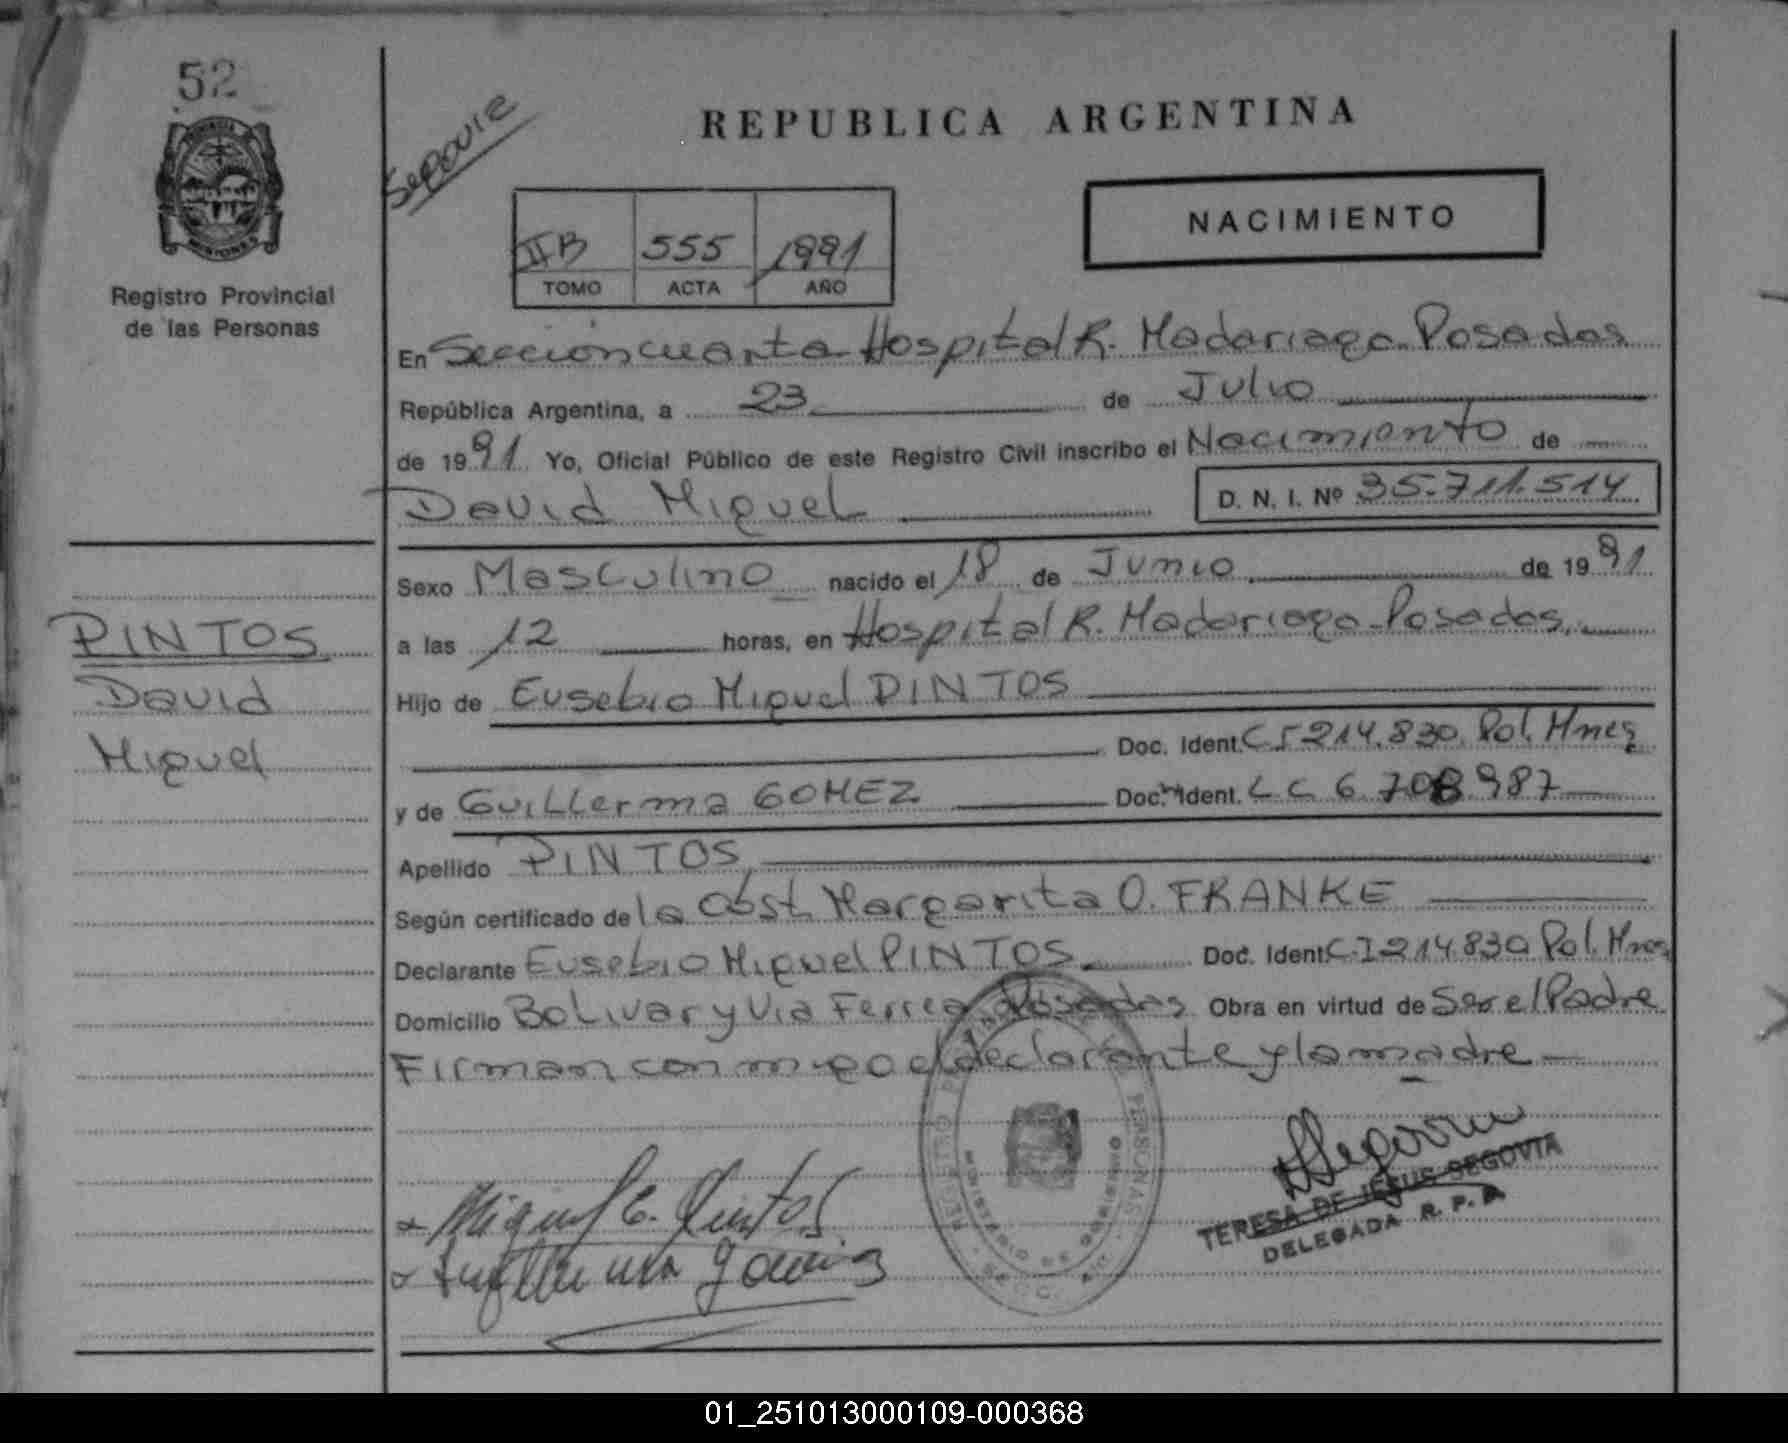 52
Registro Provincial
de las Personas
PINTOS
David
Miguel
REPUBLICA ARGENTINA
IIB 555 1991
TOMO ACTA AÑO
NACIMIENTO
En Sección cuarta Hospital R. Madariaga-Posadas
República Argentina, a 23 de Julio
de 1991 Yo, Oficial Público de este Registro Civil inscribo el Nacimiento de
David Miguel D. N. I. Nº 35.711.514
Sexo Masculino nacido el 18 de Junio de 1991
a las 12 horas, en Hospital R. Madariaga-Posadas.
Hijo de Eusebio Miguel PINTOS
Doc. Ident. C I 214.830. Pol. Mnes
y de Guillerma GOMEZ Doc. Ident. L C 6.708.987
Apellido PINTOS
Según certificado de la Obst. Margarita O. FRANKE
Declarante Eusebio Miguel PINTOS Doc. Ident C.I 214.830 Pol. Mnes
Domicilio Bolivar y Via Ferrea Posadas Obra en virtud de Ser el Padre
Firman conmigo el declarante y la madre
Miguel E. Pintos
Guillerma Gomez
TERESA DE JESUS SEGOVIA
DELEGADA R. P. P.
01_251013000109-000368